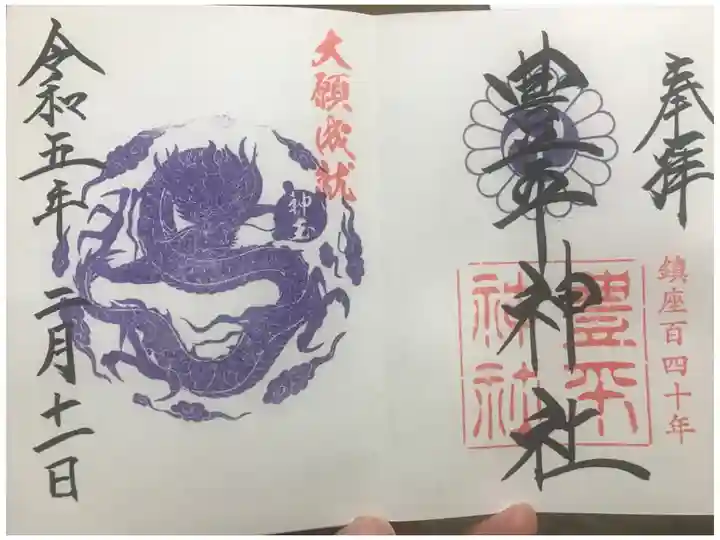 奉拝
豊平神社
鎮座百四十年
豊平
神社
大願成就
神玉
令和五年 二月十一日